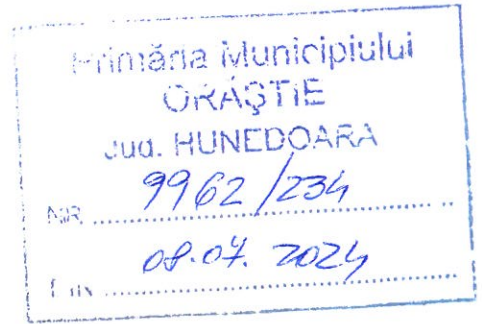 Primăria Municipiului
ORĂŞTIE
Jud. HUNEDOARA
NR. 9962/234
08.07. 2024